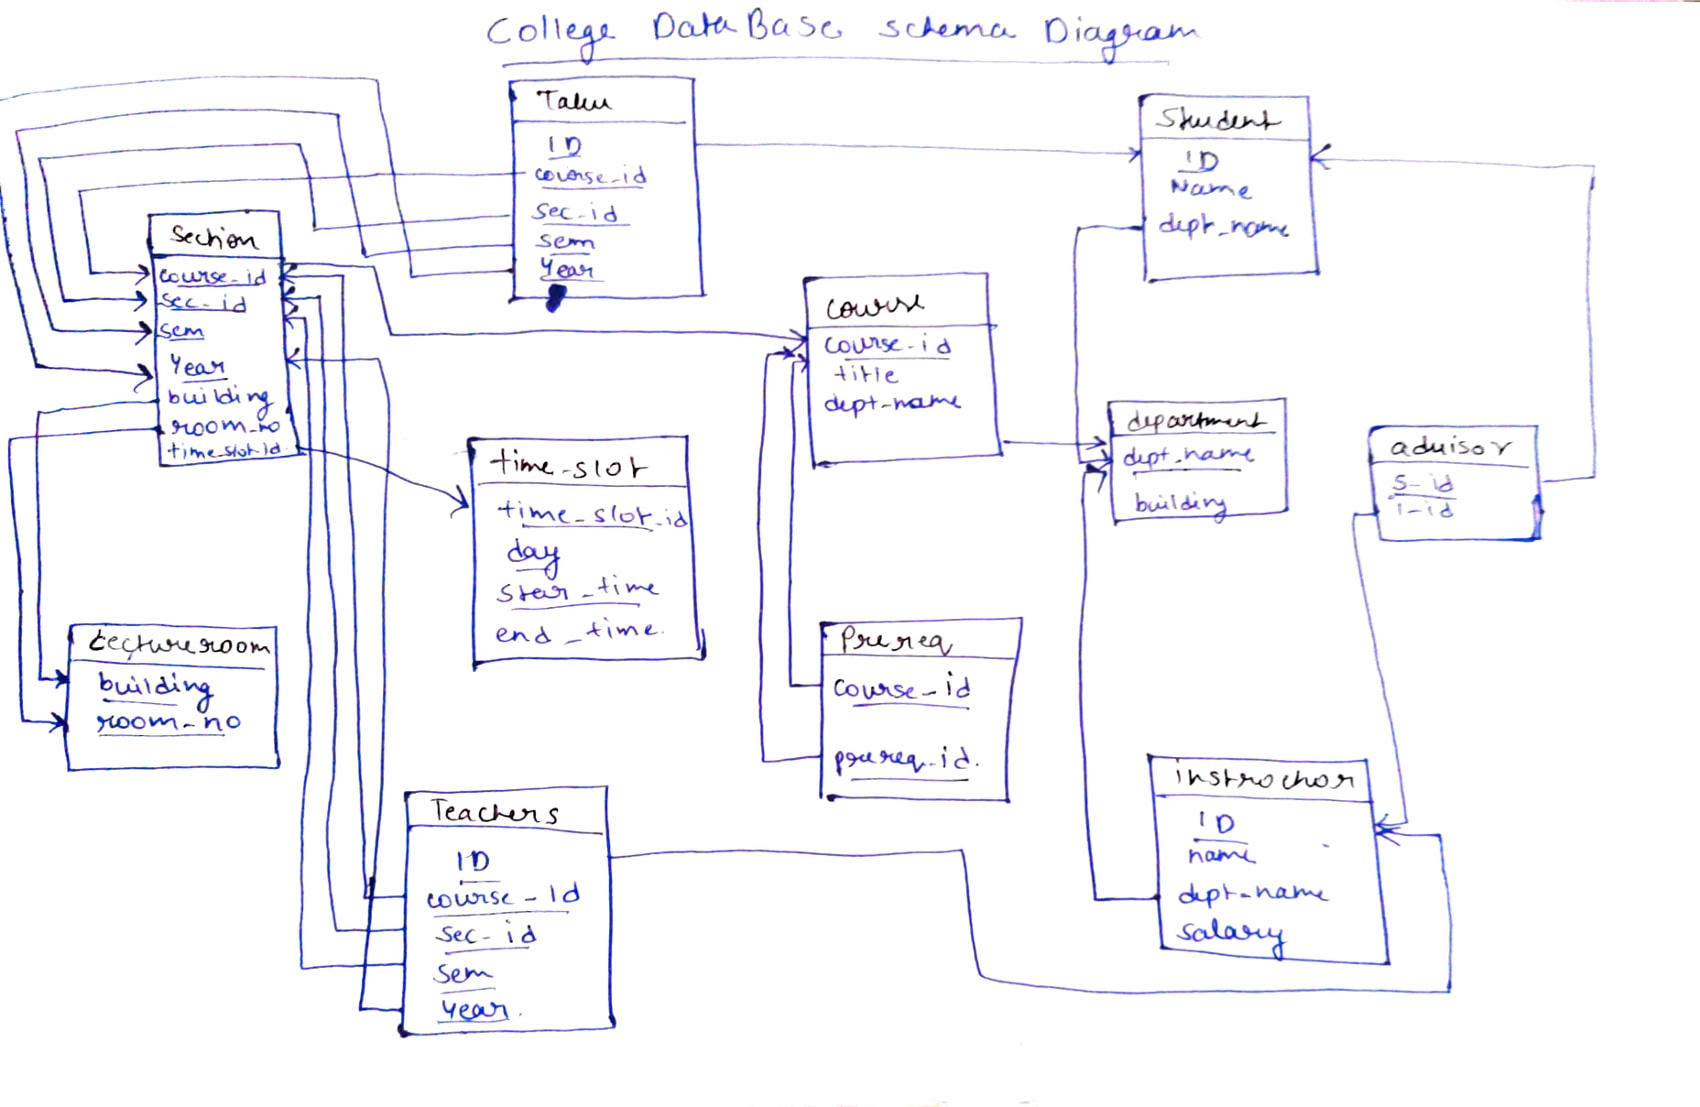 College DataBase schema Diagram
Takes
ID
course-id
sec-id
sem
Year
Student
ID
Name
dept-name
Section
course-id
sec-id
sem
Year
building
room-no
time-slot-id
course
course-id
title
dept-name
department
dept-name
building
advisor
s-id
i-id
time-slot
time-slot-id
day
star-time
end-time.
Lectureroom
building
room-no
Prereq
course-id
prereq-id.
instroctor
ID
name
dept-name
salary
Teachers
ID
course-id
sec-id
sem
Year.